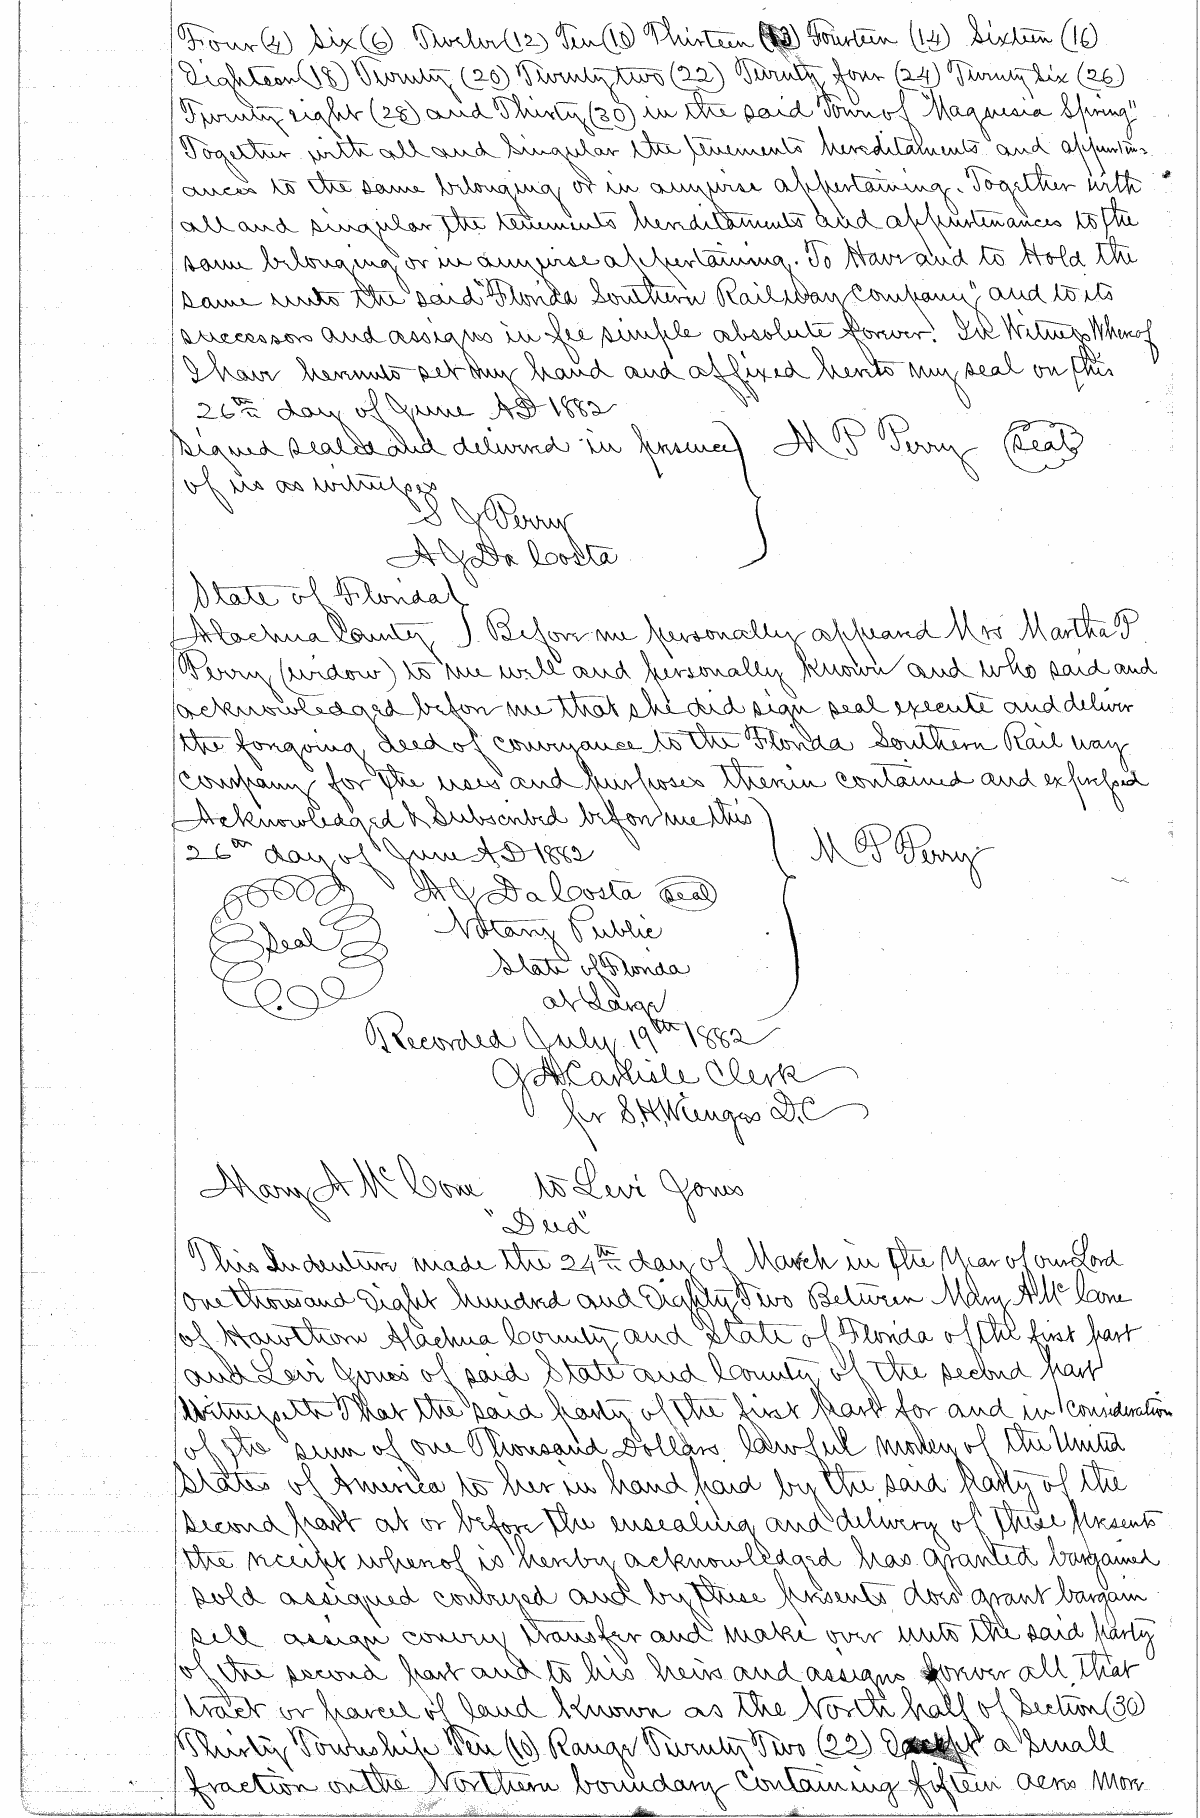 Four (4) Six (6) Twelve (12) Ten (10) Thirteen (13) Fourteen (14) Sixteen (16)
Eighteen (18) Twenty (20) Twenty two (22) Twenty four (24) Twenty Six (26)
Twenty eight (28) and Thirty (30) in the said Town of "Magnesia Spring"
Together with all and Singular the tenements hereditaments and appurten-
ances to the same belonging or in anywise appertaining. Together with
all and singular the tenements hereditaments and appurtenances to the
same belonging or in anywise appertaining. To Have and to Hold the
same unto the said "Florida Southern Railway Company" and to its
successors and assigns in fee simple absolute forever. In Witness Whereof
I have hereunto set my hand and affixed hereto my seal on this
26th day of June AD 1882
Signed sealed and delivered in presence) M P Perry (Seal)
of us as witnesses
S J Perry
A J Da Costa
State of Florida
Alachua County } Before me personally appeared Mrs Martha P
Perry (widow) to me well and personally known and who said and
acknowledged before me that she did sign seal execute and deliver
the forgoing deed of conveyance to the Florida Southern Rail way
Company for the uses and purposes therein contained and expressed
Acknowledged & Subscribed before me this
26th day of June A.D 1882 M P Perry
A J Da Costa (seal)
Seal Notary Public
State of Florida
at Large
Recorded July 19th 1882
J A Carlisle Clerk
for S. H. Wienges D.C
Mary A Mc Cone to Levi Jones
"Deed"
This Indenture made the 24th day of March in the Year of our Lord
One thousand Eight hundred and Eighty Two Between Mary A Mc Cone
of Hawthorn Alachua County and State of Florida of the first part
and Levi Jones of said State and County of the second part
Witnesseth That the said party of the first part for and in consideration
of the sum of one Thousand Dollars lawful money of the United
States of America to her in hand paid by the said Party of the
second part at or before the ensealing and delivery of these presents
the receipt whereof is hereby acknowledged has granted bargained
sold assigned conveyed and by these presents does grant bargain
sell assign convey transfer and make over unto the said party
of the second part and to his heirs and assigns forever all that
tract or parcel of land known as the North half of Section (30)
Thirty Township Ten (10) Range Twenty Two (22) Except a Small
fraction on the Northern boundary Containing fifteen acres more